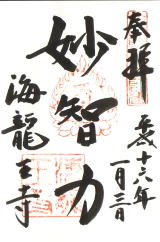 奉拝
平成十六年
一月三日
妙智力
海龍王寺